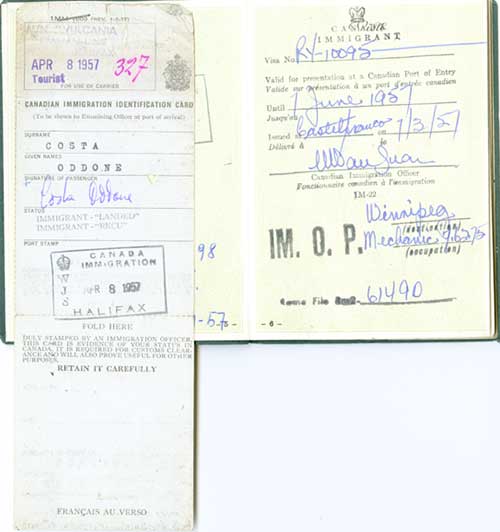 IMM 1000 (REV. 1-6-57)
APR 8 1957
327
Tourist
FOR USE OF CARRIER
CANADIAN IMMIGRATION IDENTIFICATION CARD
(To be shown to Examining Officer at port of arrival)
SURNAME
COSTA
GIVEN NAMES
ODDONE
SIGNATURE OF PASSENGER
Costa Oddone
STATUS
IMMIGRANT - "LANDED"
IMMIGRANT - "RECU"
PORT STAMP
CANADA
IMMIGRATION
W
J
S
APR 8 1957
HALIFAX
FOLD HERE
DULY STAMPED BY AN IMMIGRATION OFFICER,
THIS CARD IS EVIDENCE OF YOUR STATUS IN
CANADA. IT IS REQUIRED FOR CUSTOMS CLEAR-
ANCE AND WILL ALSO PROVE USEFUL FOR OTHER
PURPOSES.
RETAIN IT CAREFULLY
FRANÇAIS AU VERSO
98
-57
CANADA
IMMIGRANT
Visa No. RY-10092
Valid for presentation at a Canadian Port of Entry
Valide sur présentation à un port d'entrée canadien
Until
7 June 1957
Jusqu'au
Issued at Castelfranco on 7/3/57
Délivré à le
Canadian Immigration Officer
Fonctionnaire canadien à l'immigration
IM-22
Winnipeg
(destination)
IM. O. P. Mechanic
(occupation)
Rome File 61490
- 6 -